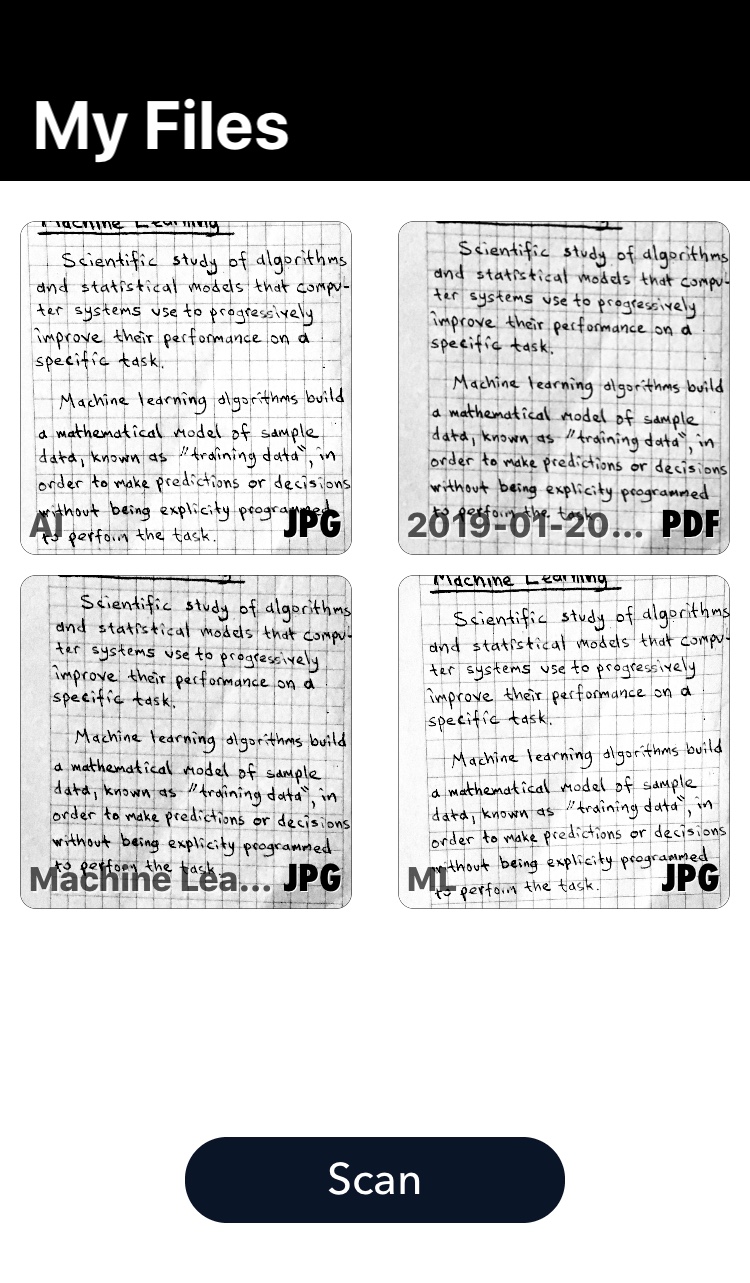 My Files
Machine Learning
Scientific study of algorithms
and statistical models that compu-
ter systems use to progressively
improve their performance on a
specific task.
Machine learning algorithms build
a mathematical model of sample
data, known as "training data", in
order to make predictions or decisions
without being explicity programmed
to perform the task.
AI
JPG
Scientific study of algorithms
and statistical models that compu-
ter systems use to progressively
improve their performance on a
specific task.
Machine learning algorithms build
a mathematical model of sample
data, known as "training data", in
order to make predictions or decisions
without being explicity programmed
to perform the task.
2019-01-20...
PDF
Scientific study of algorithms
and statistical models that compu-
ter systems use to progressively
improve their performance on a
specific task.
Machine learning algorithms build
a mathematical model of sample
data, known as "training data", in
order to make predictions or decisions
without being explicity programmed
to perform the task.
Machine Lea...
JPG
Machine Learning
Scientific study of algorithms
and statistical models that compu-
ter systems use to progressively
improve their performance on a
specific task.
Machine learning algorithms build
a mathematical model of sample
data, known as "training data", in
order to make predictions or decisions
without being explicity programmed
to perform the task.
ML
JPG
Scan